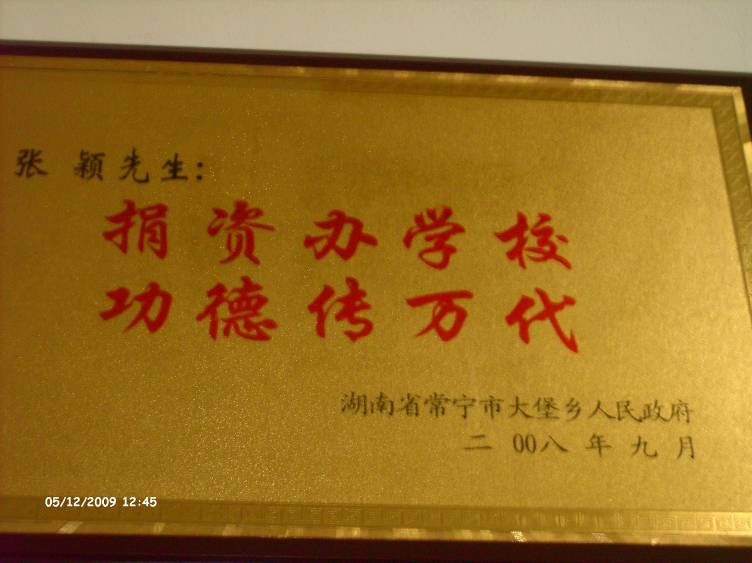 张 颖先生：
捐资办学校
功德传万代
湖南省常宁市大堡乡人民政府
二00八年九月
05/12/2009 12:45